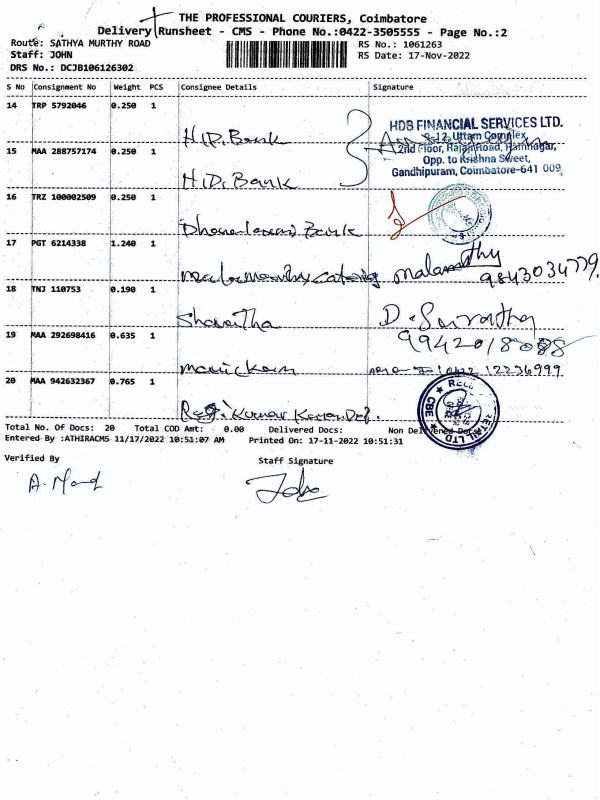 THE PROFESSIONAL COURIERS, Coimbatore
Delivery Runsheet - CMS - Phone No.:0422-3505555 - Page No.:2
Route: SATHYA MURTHY ROAD
RS No.: 1061263
Staff: JOHN
RS Date: 17-Nov-2022
DRS No.: DCJB106126302
S No Consignment No Weight PCS Consignee Details Signature
14 TRP 5792046 0.250 1
H.D. Bank
HDB FINANCIAL SERVICES LTD.
S-12, Uttam Complex,
2nd Floor, Rajaji Road, Ramnagar,
Opp. to Krishna Sweet,
Gandhipuram, Coimbatore-641 009
15 MAA 288757174 0.250 1
H.D. Bank
16 TRZ 100002509 0.250 1
Bank
17 PGT 6214338 1.240 1
9843034779
18 TNJ 110753 0.190 1
Sharatha
9942018088
19 MAA 292698416 0.635 1
Manickam
20 MAA 942632367 0.765 1
Kumar
RETAIL LTD CBE
Total No. Of Docs: 20 Total COD Amt: 0.00 Delivered Docs: Non Delivered Docs:
Entered By :ATHIRACMS 11/17/2022 10:51:07 AM Printed On: 17-11-2022 10:51:31
Verified By Staff Signature